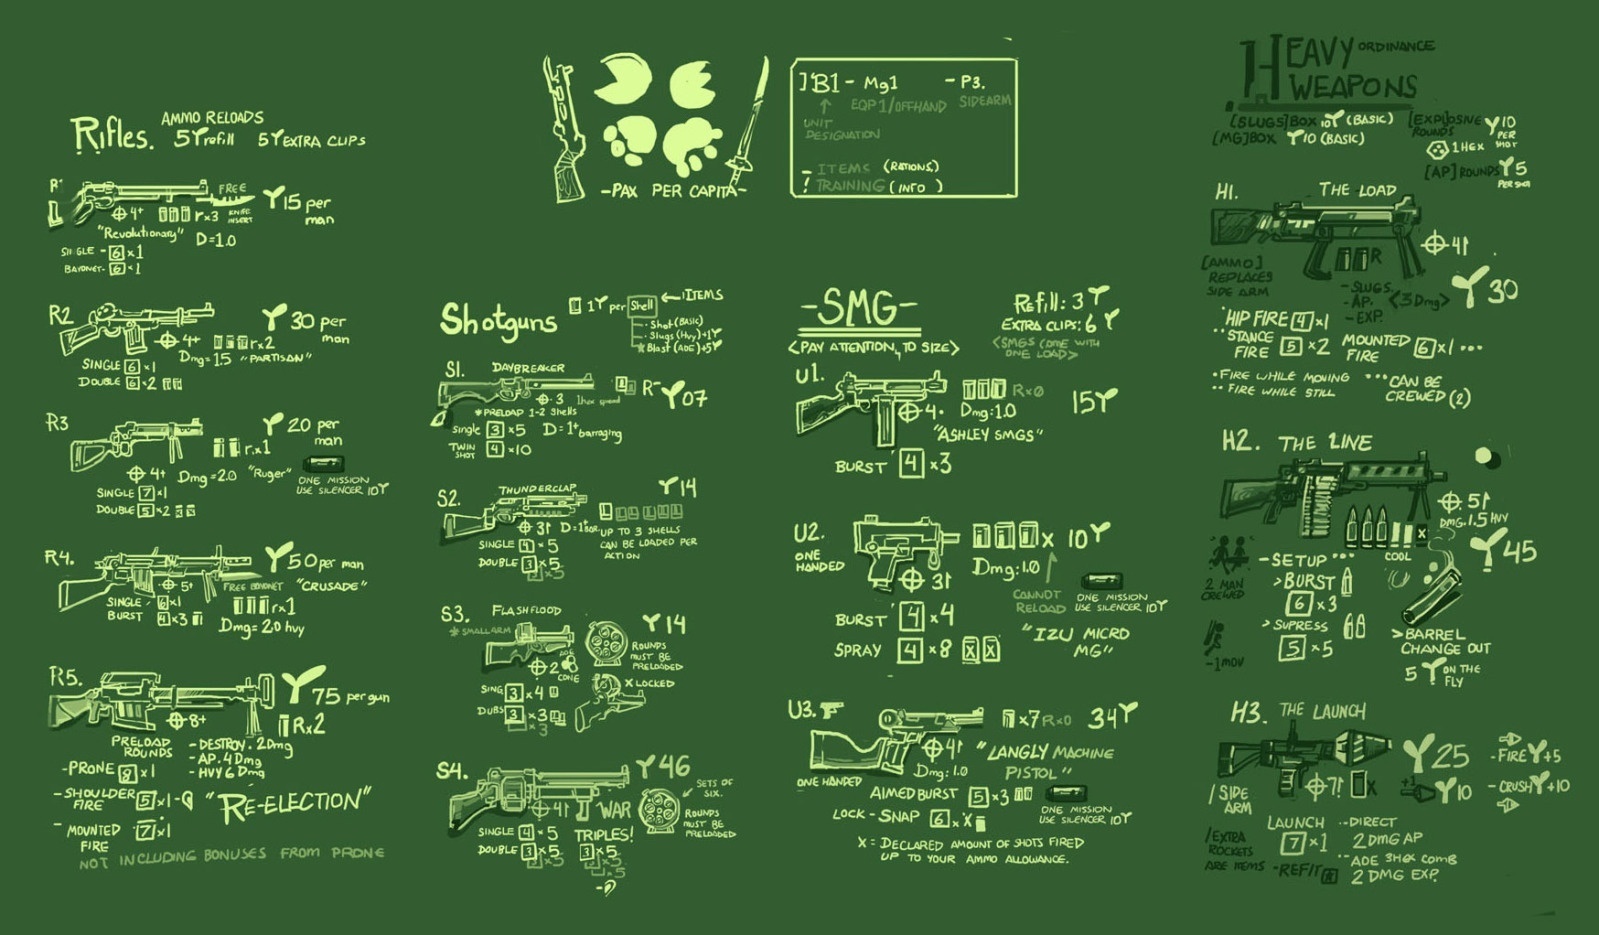 Rifles.
AMMO RELOADS
5 refill 5 EXTRA CLIPS
R1
FREE
KNIFE
INSERT
15 per
man
4+ r x3
"Revolutionary" D=1.0
SINGLE - 6 x1
BAYONET - 6 x1
R2
30 per
man
4+ r x2
Dmg=1.5 "PARTISAN"
SINGLE 6 x1
DOUBLE 6 x2
R3
20 per
man
r.x1
4+ Dmg=2.0 "Ruger"
ONE MISSION
USE SILENCER 10
SINGLE 7 x1
DOUBLE 5 x2
R4.
50 per man
5+ FREE BAYONET "CRUSADE"
SINGLE 6 x1
BURST 4 x3
r x1
Dmg=2.0 hvy
R5.
75 per gun
8+ R x2
PRELOAD
ROUNDS
- DESTROY. 2Dmg
- AP. 4 Dmg
- HVY 6 Dmg
- PRONE 8 x1
- SHOULDER
FIRE 5 x1
"RE-ELECTION"
- MOUNTED
FIRE 7 x1
NOT INCLUDING BONUSES FROM PRONE
-PAX PER CAPITA-
]B1 - Mg1 - P3.
EQP1/OFFHAND SIDEARM
UNIT
DESIGNATION
- ITEMS (RATIONS)
! TRAINING (INFO)
Shotguns
1 per Shell ITEMS
- Shot (BASIC)
- Slugs (Hvy)+1
Blast (AOE)+5
S1. DAYBREAKER
R- 07
3 1hex spread
* PRELOAD 1-2 Shells
Single 3 x5 D=1+ barraging
TWIN
SHOT 4 x10
S2. THUNDERCLAP
14
3 D=1
UP TO 3 SHELLS
CAN BE LOADED PER
ACTION
SINGLE 4 x5
DOUBLE 3 x5
x5
S3. FLASHFLOOD
* SMALL ARM
14
ROUNDS
MUST BE
PRELOADED
2 CONE
X LOCKED
SING 3 x4
DUBS 3 x3
x3
S4.
46
SETS OF
SIX.
4 WAR
ROUNDS
MUST BE
PRELOADED
SINGLE 4 x5
DOUBLE 3 x5
x5
TRIPLES!
3 x5
x5
x5
-SMG-
<PAY ATTENTION, TO SIZE>
Refill: 3
EXTRA CLIPS: 6
<SMGS COME WITH
ONE LOAD>
U1.
Rx0
15
4. Dmg:1.0
"ASHLEY SMGS"
BURST 4 x3
U2.
ONE
HANDED
x 10
Dmg:1.0
3
CANNOT
RELOAD
ONE MISSION
USE SILENCER 10
BURST 4 x4
SPRAY 4 x8
"IZU MICRO
MG"
U3.
x7 Rx0 34
4
"LANGLY MACHINE
PISTOL"
ONE HANDED
Dmg:1.0
AIMED BURST 5 x3
ONE MISSION
USE SILENCER 10
LOCK-SNAP 6 x X
X = DECLARED AMOUNT OF SHOTS FIRED
UP TO YOUR AMMO ALLOWANCE.
HEAVY ORDINANCE
WEAPONS
[SLUGS]BOX 10 (BASIC)
[MG]BOX 10 (BASIC)
[EXPLOSIVE
ROUNDS 10
PER
SHOT
1 HEX
[AP] ROUNDS 5
PER SHOT
H1. THE LOAD
4
R
[AMMO]
REPLACES
SIDE ARM
- SLUGS.
- AP. <3 Dmg>
- EXP.
30
HIP FIRE 4 x1
STANCE
FIRE 5 x2
MOUNTED
FIRE 6 x1 ...
• FIRE WHILE MOVING
•• FIRE WHILE STILL
••• CAN BE
CREWED (2)
H2. THE LINE
5
DMG.1.5 HVY
COOL
45
2 MAN
CREWED
- SETUP ...
> BURST
6 x3
> SUPRESS
5 x5
-1 MOV
> BARREL
CHANGE OUT
5 ON THE
FLY
H3. THE LAUNCH
25
- FIRE +5
7 x
+1 10
- CRUSH +10
/ SIDE
ARM
LAUNCH
7 x1
·· DIRECT
2 DMG AP
/EXTRA
ROCKETS
ARE ITEMS
- REFIT
·· AOE 3 HEX COMB
2 DMG EXP.